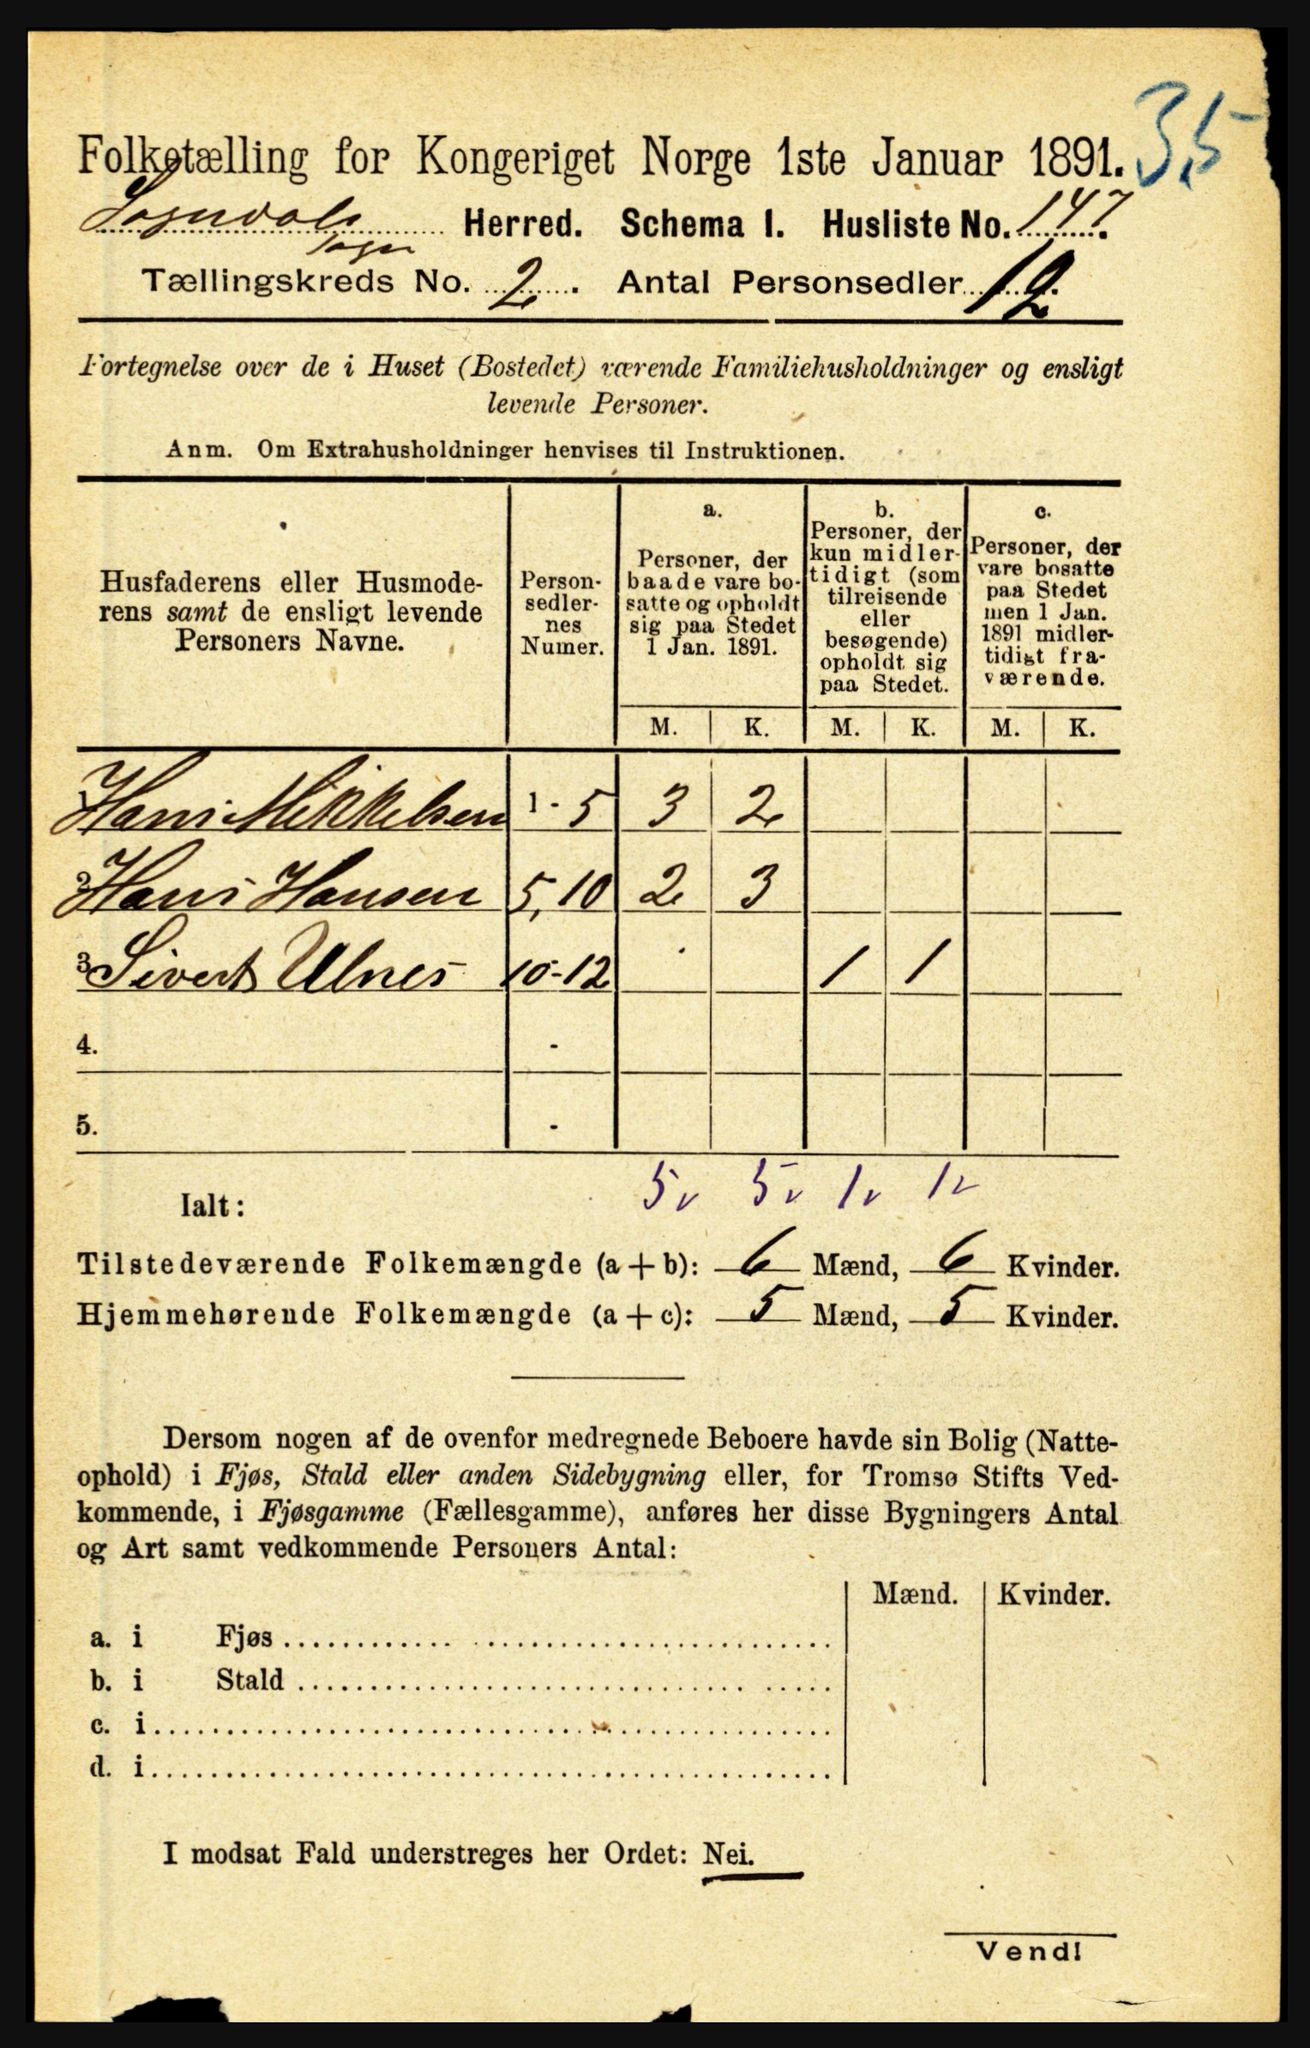 35
Folketælling for Kongeriget Norge 1ste Januar 1891.
Sogndals Herred. Schema I. Husliste No. 147.
Sogn
Tællingskreds No. 2. Antal Personsedler 12.
Fortegnelse over de i Huset (Bostedet) værende Familiehusholdninger og ensligt
levende Personer.
Anm. Om Extrahusholdninger henvises til Instruktionen.
Husfaderens eller Husmode-
rens samt de ensligt levende
Personers Navne.
Person-
sedler-
nes
Numer.
a.
Personer, der
baade vare bo-
satte og opholdt
sig paa Stedet
1 Jan. 1891.
b.
Personer, der
kun midler-
tidigt (som
tilreisende
eller
besøgende)
opholdt sig
paa Stedet.
c.
Personer, der
vare bosatte
paa Stedet
men 1 Jan.
1891 midler-
tidigt fra-
værende.
M. K. M. K. M. K.
Hans Mikkelsen 1 - 5 3 2
2 Hans Hansen 5, 10 2 3
3 Sivert Ulnes 10-12 1 1
4. -
5. -
5 5 1 1
Ialt:
Tilstedeværende Folkemængde (a + b): 6 Mænd, 6 Kvinder.
Hjemmehørende Folkemængde (a + c): 5 Mænd, 5 Kvinder.
Dersom nogen af de ovenfor medregnede Beboere havde sin Bolig (Natte-
ophold) i Fjøs, Stald eller anden Sidebygning eller, for Tromsø Stifts Ved-
kommende, i Fjøsgamme (Fællesgamme), anføres her disse Bygningers Antal
og Art samt vedkommende Personers Antal:
Mænd. Kvinder.
a. i Fjøs
b. i Stald
c. i
d. i
I modsat Fald understreges her Ordet: Nei.
Vend!